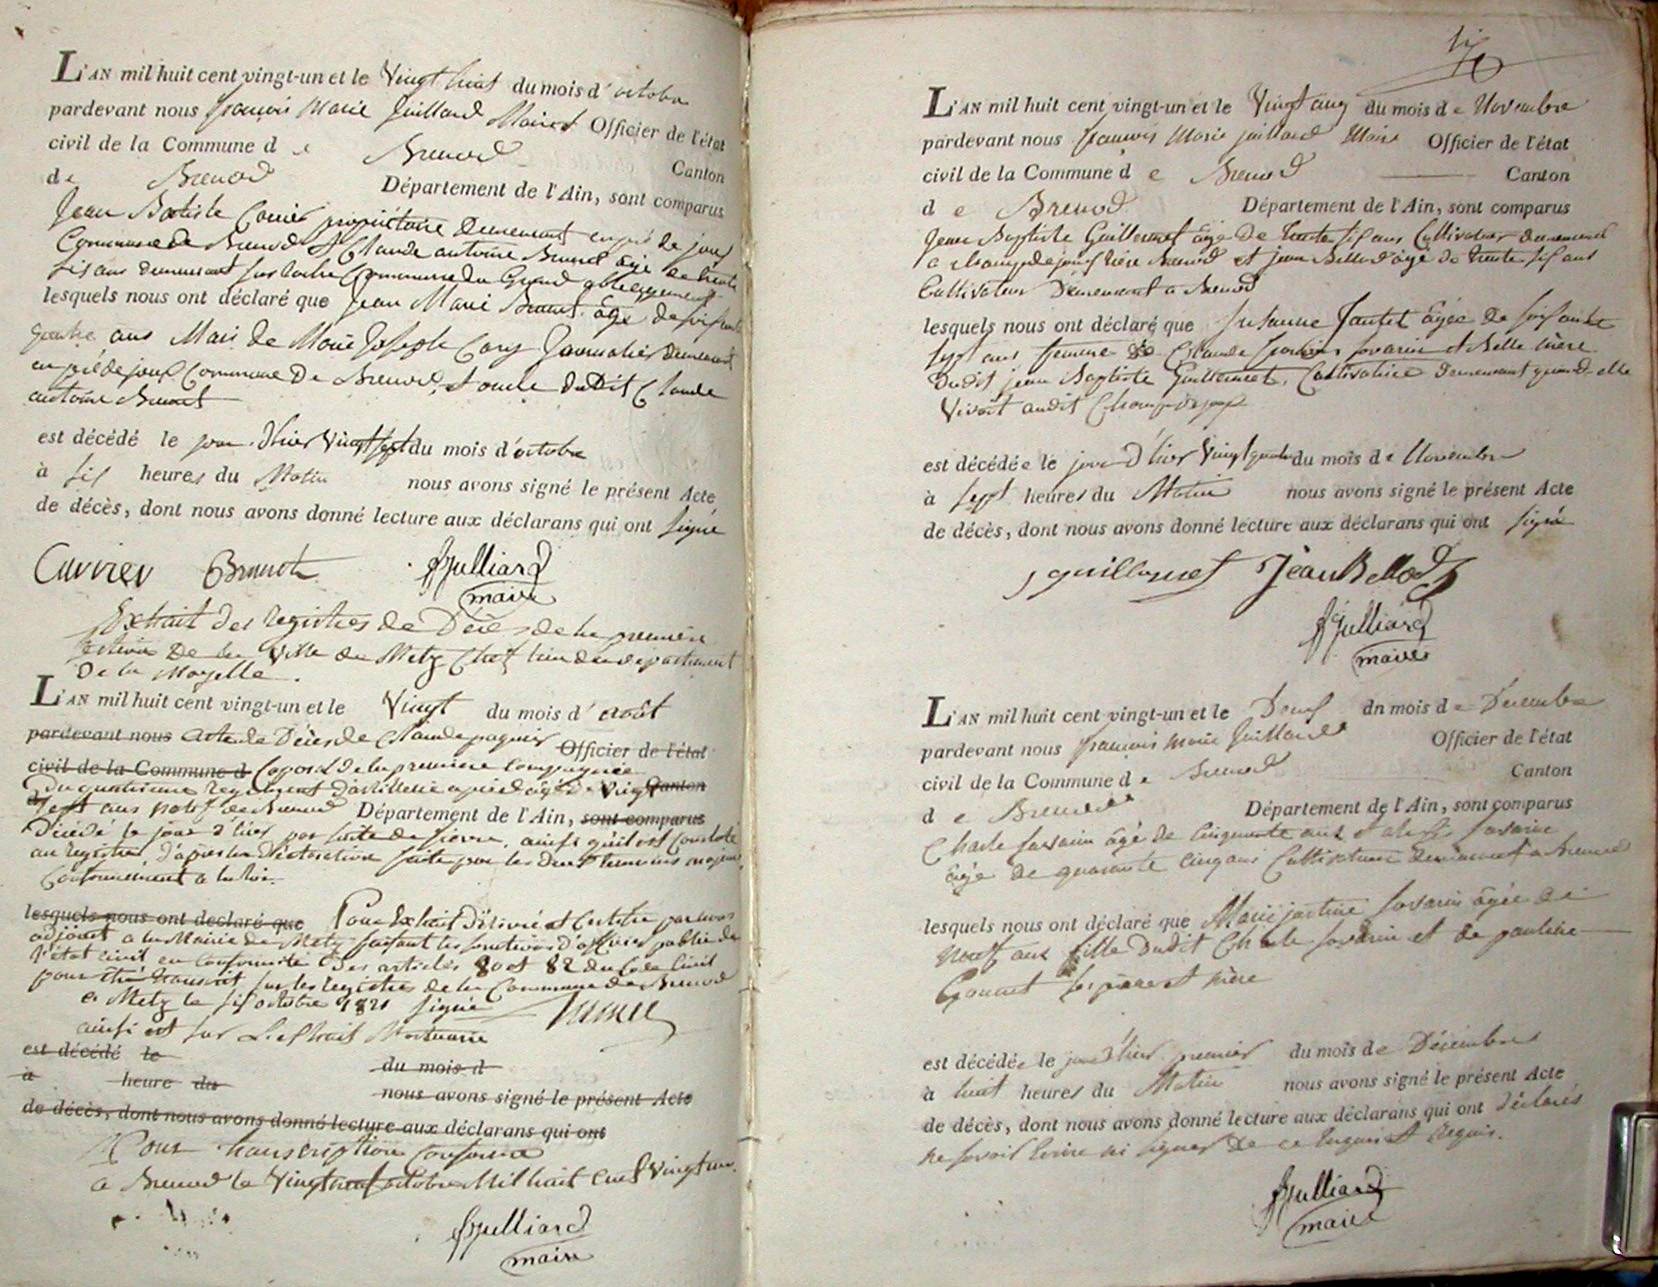 L'AN mil huit cent vingt-un et le Vingt huit du mois d'octobre
pardevant nous françois Marie Juillard Maire Officier de l'état
civil de la Commune de Brenod Canton
de Brenod Département de l'Ain, sont comparus
Jean Batiste Carrier propriétaire Demeurant en pré de joux
Commune de Brenod et Claude antoine Brunet âgé de trente
six ans demeurant sur Commune du Grand abbergement
lesquels nous ont déclaré que Jean Marie Brunet âgé de soixante
quatre ans Mari de Marie Josephe Cary Journalier demeurant
en pré de joux Commune De Brenod, et oncle du Dit Claude
antoine Brunet
est décédé le jour d'hier Vingt sept du mois d'octobre
à six heures du Matin nous avons signé le présent Acte
de décès, dont nous avons donné lecture aux déclarans qui ont signé
Currier Brunet fJulliard
maire
Extrait des Registres de Décès de la première
section De la Ville de Metz Chef lieu du département
De la Mozelle.
L'AN mil huit cent vingt-un et le Vingt du mois d'août
pardevant nous acte de Décès de Claude paquier Officier de l'état
civil de la Commune d Caporal de la premiere Compagnie
Du quatrieme Regiment d'artillerie a pied agé de Vingt Canton
d sept ans natif de Brenod Département de l'Ain, sont comparus
Décédé le jour d'hier par suite de fievre, ainsi qu'il est Constaté
au registre, d'après la Déclaration faite par les deux temoins majeurs
Conformement a la loi.
lesquels nous ont déclaré que Pour Extrait Délivré et Certifié par nous
adjoint a la Mairie de Metz faisant les fonctions d'officier public de
l'état civil en Conformité des articles 80 et 82 du Code Civil
pour être transcrit sur les registres de la Commune de Brenod
a Metz le six octobre 1821 signé
ainsi est sur L'extrait Mortuaire
est décédé le du mois d
à heure du nous avons signé le présent Acte
de décès, dont nous avons donné lecture aux déclarans qui ont
Pour transcription Conforme
a Brenod le Vingt neuf octobre Mil huit cent Vingt un.
fJulliard
maire
L'AN mil huit cent vingt-un et le Vingt cinq du mois de Novembre
pardevant nous françois Marie Juillard Maire Officier de l'état
civil de la Commune de Brenod Canton
de Brenod Département de l'Ain, sont comparus
Jean Baptiste Guillermet âgé De trente six ans Cultivateur demeurant
a Champdejoux Brenod et jean Bellod âgé de trente six ans
Cultivateur Demeurant a Brenod
lesquels nous ont déclaré que Susanne Tautet âgée de soixante
sept ans femme de Claude Savarin et Belle mère
Dudit jean Baptiste Guillermet, Cultivatrice demeurant quand elle
Vivoit audit Champdejoux
est décédée le jour d'hier Vingt quatre du mois de Novembre
à sept heures du Matin nous avons signé le présent Acte
de décès, dont nous avons donné lecture aux déclarans qui ont signé
guillermet Jean Bellod
fJulliard
maire
L'AN mil huit cent vingt-un et le Deux du mois de Décembre
pardevant nous françois Marie Juillard Officier de l'état
civil de la Commune de Brenod Canton
de Brenod Département de l'Ain, sont comparus
Charle Savarin âgé de Cinquante ans et Savarin
âgé de quarante cinq ans Cultivateurs demeurant a Brenod
lesquels nous ont déclaré que Marie justine Savarin âgée de
neuf ans fille Dudit Charle Savarin et de pauline
Gonnet ses père et mère
est décédée le jour d'hier premier du mois de Décembre
à huit heures du Matin nous avons signé le présent Acte
de décès, dont nous avons donné lecture aux déclarans qui ont déclarés
ne savoir Ecrire ni signer De ce Enquis et Requis.
fJulliard
maire